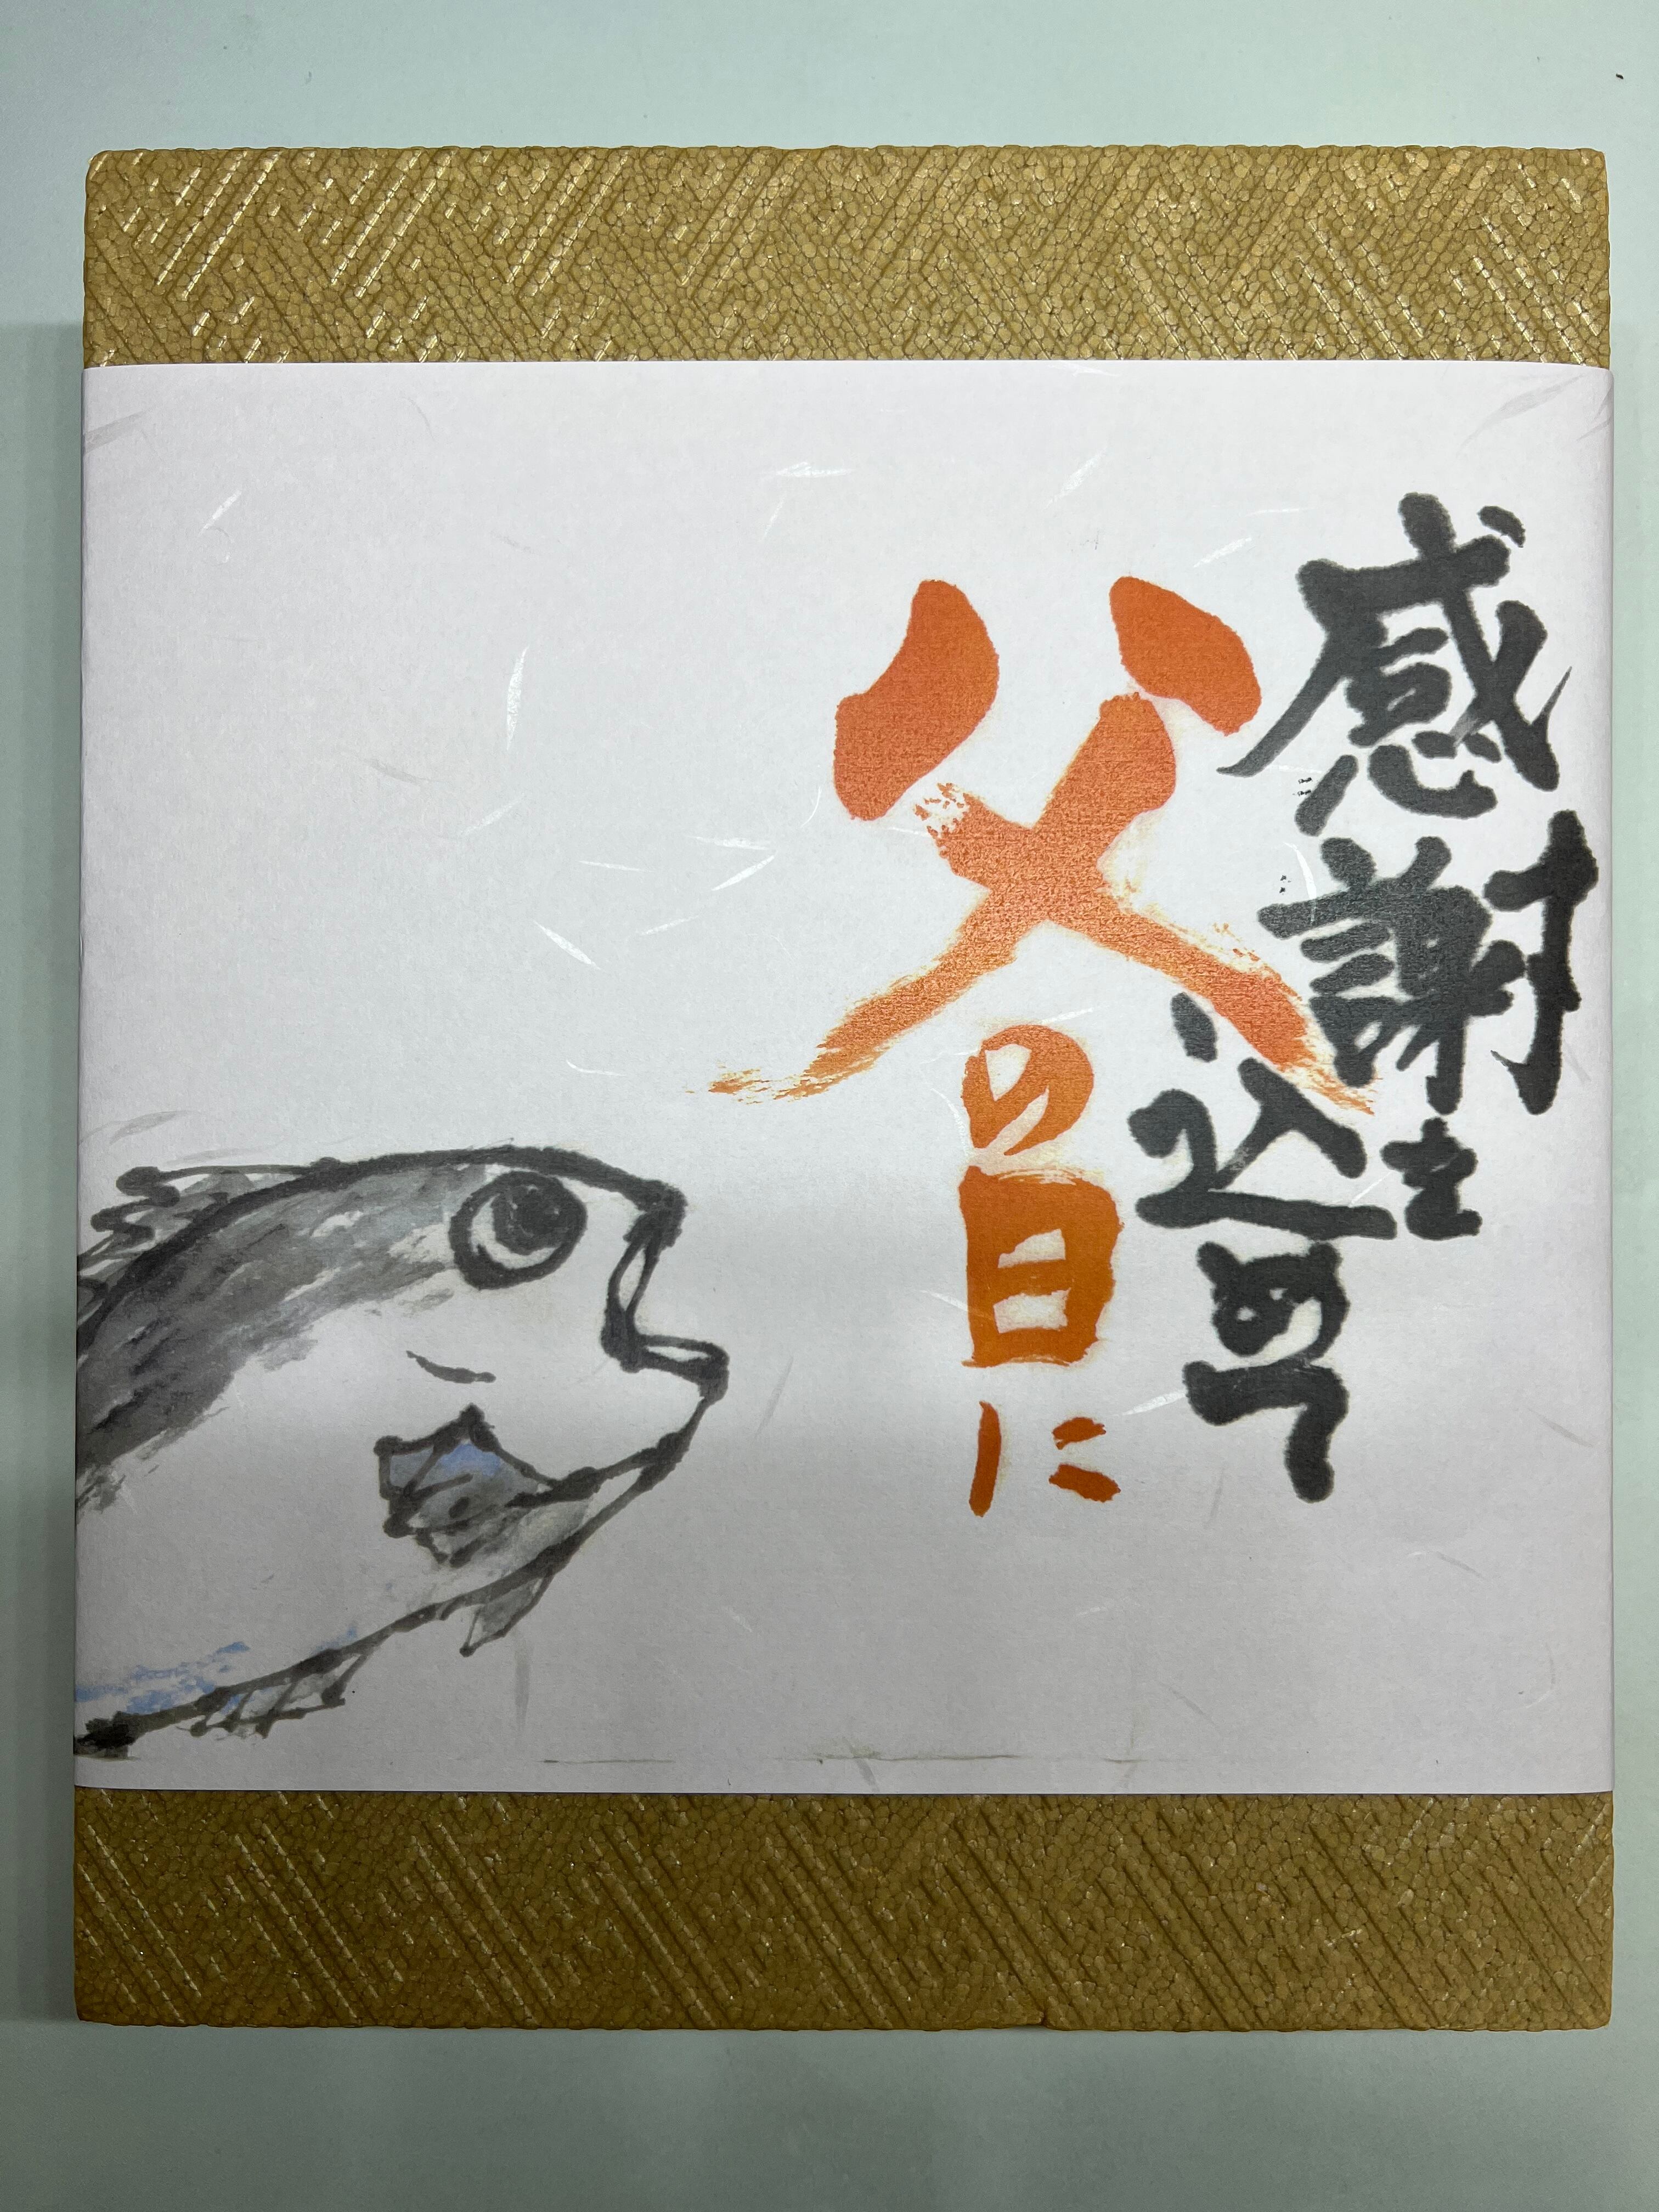 感謝を
込めて
父の日に